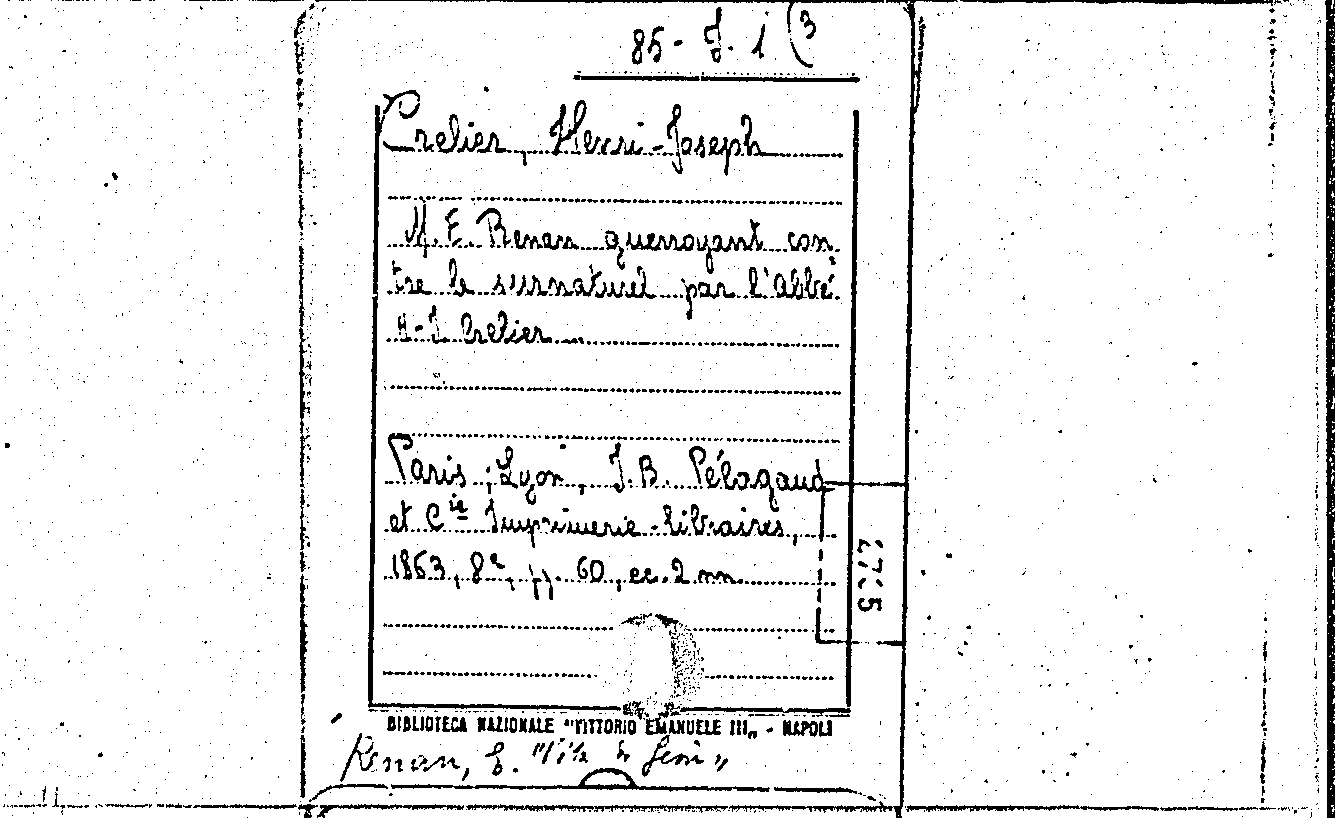 85 - J. 1 (3
Crelier, Henri-Joseph
M. E. Renan guerroyant con-
tre le surnaturel par l'abbé
H-J. Crelier...
Paris ; Lyon, J. B. Pélagaud
et Cie Imprimerie-libraires,
1863, 8°, pp. 60, cc. 2 nn.
BIBLIOTECA NAZIONALE "VITTORIO EMANUELE III„ - NAPOLI
Renan, E. "Vita di Gesù„